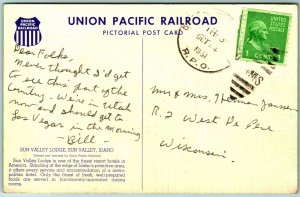 UNION PACIFIC RAILROAD
PICTORIAL POST CARD
UNION PACIFIC RAILROAD
OCT
R.P.O.
1 CENT
Dear Folks:
Never thought I'd get
to see this part of the
Country. We're in Utah
now and should get to
Las Vegas in the morning
-Bill-
Mr & Mrs Herman Jansse
R. 2 West De Pere
Wisconsin.
SUN VALLEY LODGE, SUN VALLEY, IDAHO
Owned and operated by Union Pacific Railroad
Sun Valley Lodge is one of the finest resort hotels in
America. Standing at the edge of Idaho's primitive area,
it offers every service and accommodation of a metro-
politan hotel. Only the finest of fresh, well-prepared
foods are served in handsomely-appointed dining
rooms.